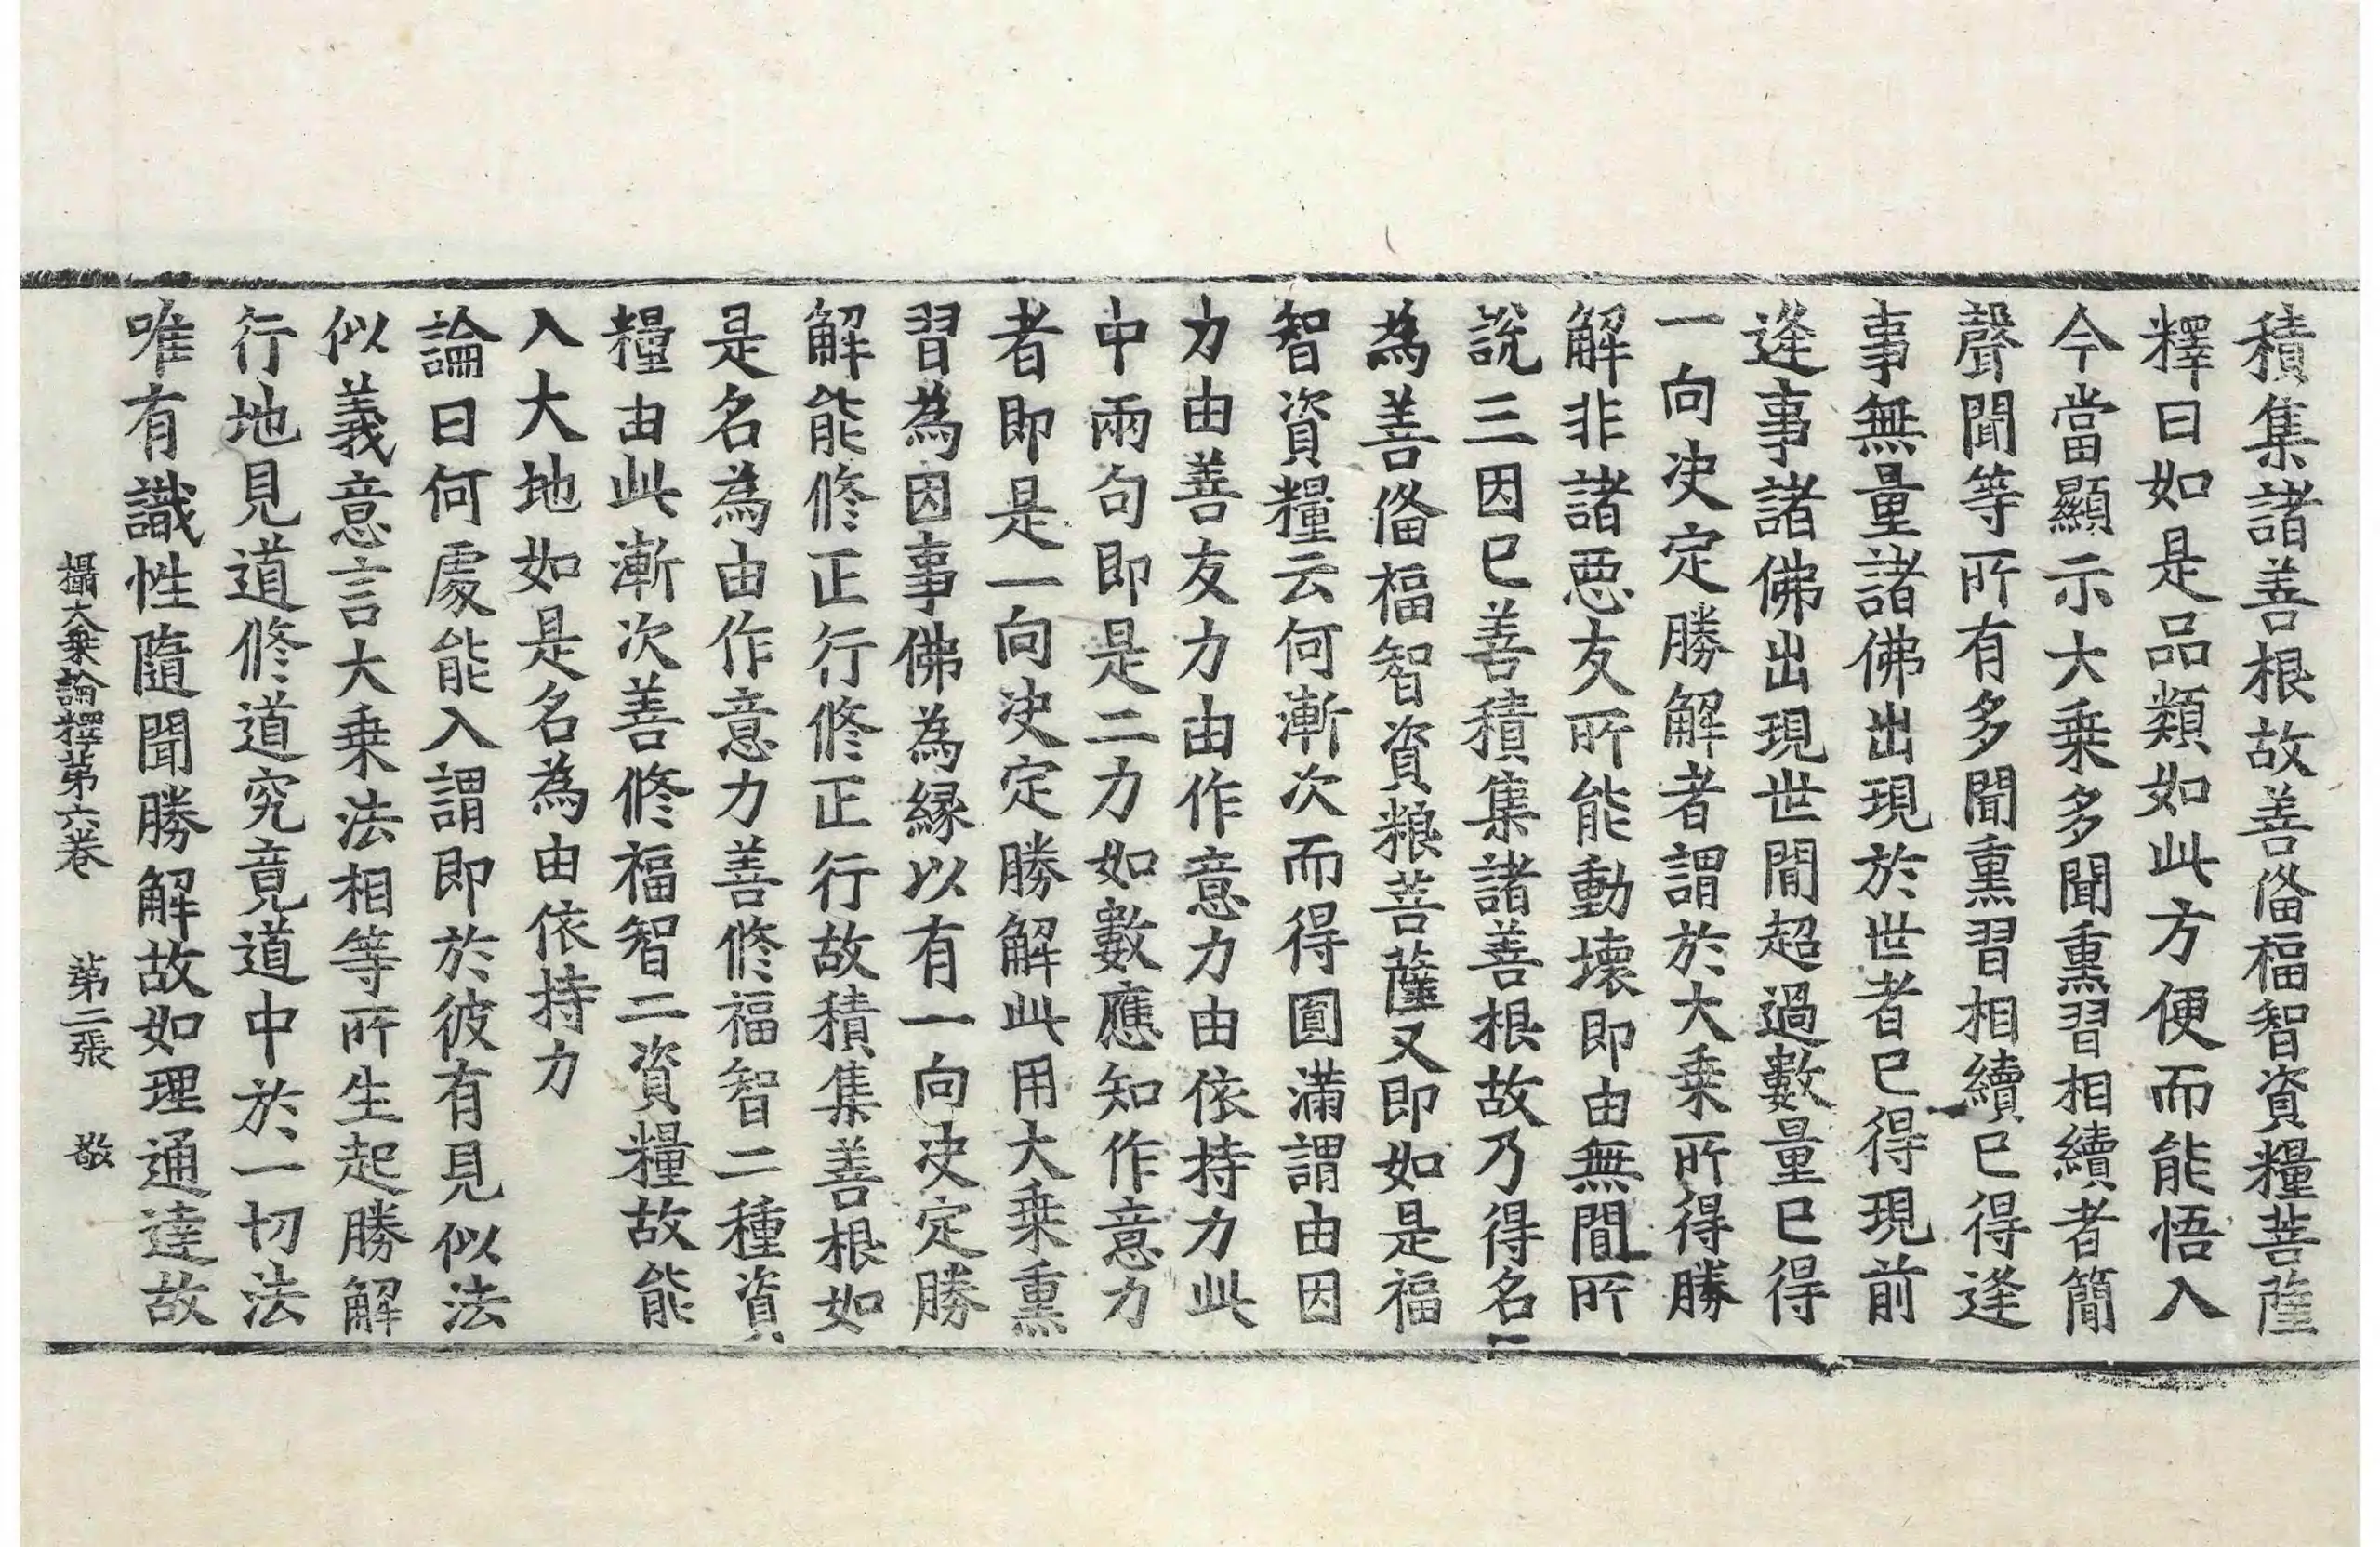 積集諸善根故善俻福智資糧菩薩
釋曰如是品類如此方便而能悟入
今當顯示大乗多聞熏習相續者簡
聲聞等所有多聞熏習相續已得逢
事無量諸佛出現於世者已得現前
逢事諸佛出現世閒超過數量已得
一向决定勝解者謂於大乗所得勝
解非諸惡友所能動壞即由無間所
說三因已善積集諸善根故乃得名
為善俻福智資粮菩薩又即如是福
智資糧云何漸次而得圓滿謂由因
力由善友力由作意力由依持力此
中兩句即是二力如數應知作意力
者即是一向决定勝解此用大乗熏
習為因事佛為縁以有一向决定勝
解能修正行修正行故積集善根如
是名為由作意力善修福智二種資
糧由此漸次善修福智二資糧故能
入大地如是名為由依持力
論曰何處能入謂即於彼有見似法
似義意言大乗法相等所生起勝解
行地見道修道究竟道中於一切法
唯有識性隨聞勝解故如理通達故
攝大乗論釋第六卷 第二張 敬